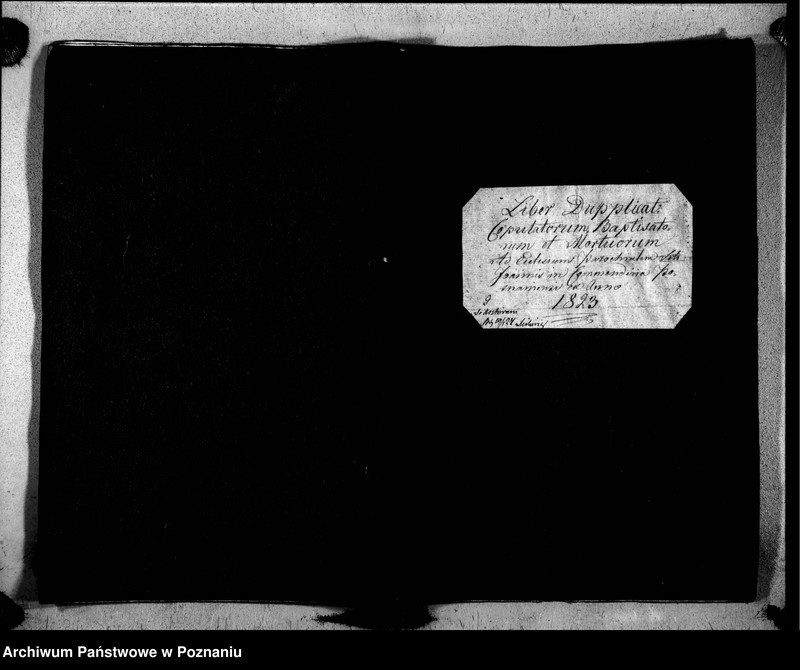 Liber Dupplicat:
Copulatorum, Baptisato-
rum et Mortuorum
Ad Ecclesiam parochialem Scti
Joannis in Commendaria Po-
snaniensi ex Anno
1823
Archiwum Państwowe w Poznaniu